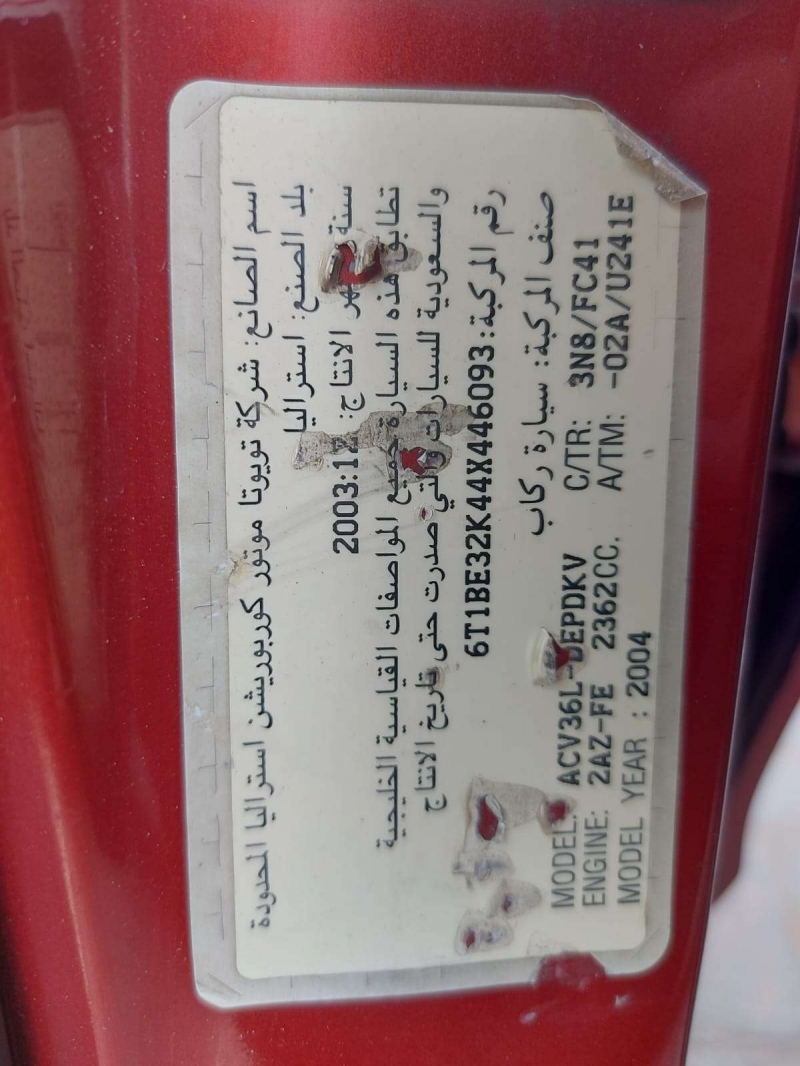 اسم الصانع: شركة تويوتا موتور كوربوريشن استراليا المحدودة
بلد الصنع: استراليا
سنة الانتاج: 2003:12
تطابق هذه السيارة جميع المواصفات القياسية الخليجية
والسعودية للسيارات والتي صدرت حتى تاريخ الانتاج
رقم المركبة: 6T1BE32K44X446093
صنف المركبة: سيارة ركاب
MODEL: ACV36L-DEPDKV C/TR: 3N8/FC41
ENGINE: 2AZ-FE 2362CC. A/TM: -02A/U241E
MODEL YEAR : 2004